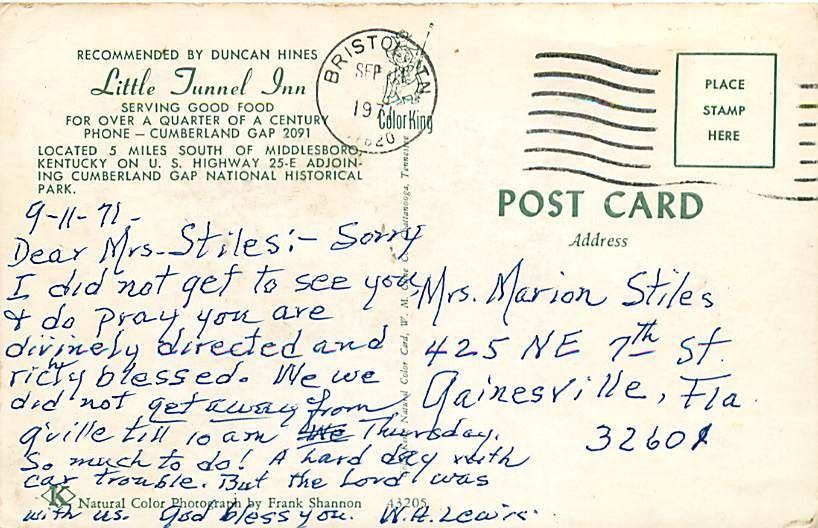 RECOMMENDED BY DUNCAN HINES
Little Tunnel Inn
SERVING GOOD FOOD
FOR OVER A QUARTER OF A CENTURY
PHONE — CUMBERLAND GAP 2091
LOCATED 5 MILES SOUTH OF MIDDLESBORO,
KENTUCKY ON U. S. HIGHWAY 25-E ADJOIN-
ING CUMBERLAND GAP NATIONAL HISTORICAL
PARK.
BRISTOL TN
SEP
1971
ColorKing
PLACE
STAMP
HERE
POST CARD
Address
9-11-71-
Dear Mrs. Stiles:- Sorry
I did not get to see you,
& do pray you are
divinely directed and
richly blessed. We we
did not get away from
G'ville till 10 am We Thursday.
So much to do! A hard day with
car trouble. But the Lord was
with us. God bless you. W.H. Lewis.
Mrs. Marion Stiles
425 NE 7th St.
Gainesville, Fla.
32601
Natural Color Card, W. M. Chattanooga, Tennessee
K Natural Color Photograph by Frank Shannon 43205